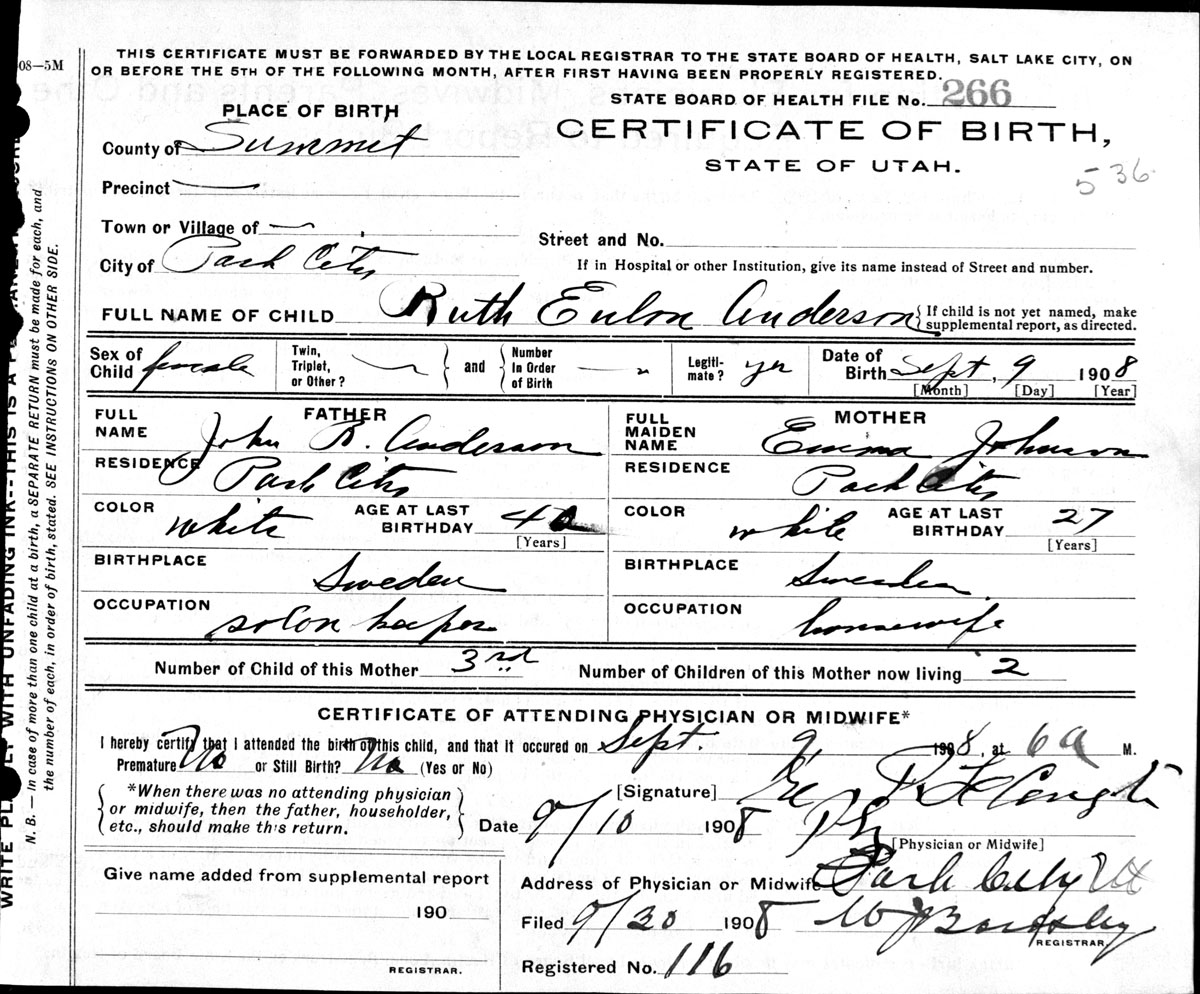 08—5M
THIS CERTIFICATE MUST BE FORWARDED BY THE LOCAL REGISTRAR TO THE STATE BOARD OF HEALTH, SALT LAKE CITY, ON
OR BEFORE THE 5TH OF THE FOLLOWING MONTH, AFTER FIRST HAVING BEEN PROPERLY REGISTERED.
STATE BOARD OF HEALTH FILE No. 266
PLACE OF BIRTH
CERTIFICATE OF BIRTH,
STATE OF UTAH.
536
County of Summit
Precinct —
Town or Village of —
Street and No.
City of Park City
If in Hospital or other Institution, give its name instead of Street and number.
FULL NAME OF CHILD Ruth Anderson { If child is not yet named, make
supplemental report, as directed.
Sex of Child female
Twin, Triplet, or Other?
and
Number In Order of Birth
Legiti-mate? yes
Date of Birth Sept, 9 1908
[Month] [Day] [Year]
FATHER
FULL NAME John R. Anderson
RESIDENCE Park City
COLOR white AGE AT LAST BIRTHDAY
[Years]
BIRTHPLACE Sweden
OCCUPATION solon keeper
MOTHER
FULL MAIDEN NAME Emma Johnson
RESIDENCE Park City
COLOR white AGE AT LAST BIRTHDAY 27
[Years]
BIRTHPLACE Sweden
OCCUPATION housewife
Number of Child of this Mother 3rd Number of Children of this Mother now living 2
CERTIFICATE OF ATTENDING PHYSICIAN OR MIDWIFE*
I hereby certify that I attended the birth of this child, and that it occured on Sept. 9 1908, at 6a M.
Premature No or Still Birth? No (Yes or No)
*When there was no attending physician
or midwife, then the father, householder,
etc., should make this return.
[Signature]
Date 9/10 1908
[Physician or Midwife]
Give name added from supplemental report
190
REGISTRAR.
Address of Physician or Midwife Park City Ut
Filed 9/30 1908
REGISTRAR
Registered No. 116
N. B.—In case of more than one child at a birth, a SEPARATE RETURN must be made for each, and
the number of each, in order of birth, stated. SEE INSTRUCTIONS ON OTHER SIDE.
WITH UNFADING INK--THIS IS A